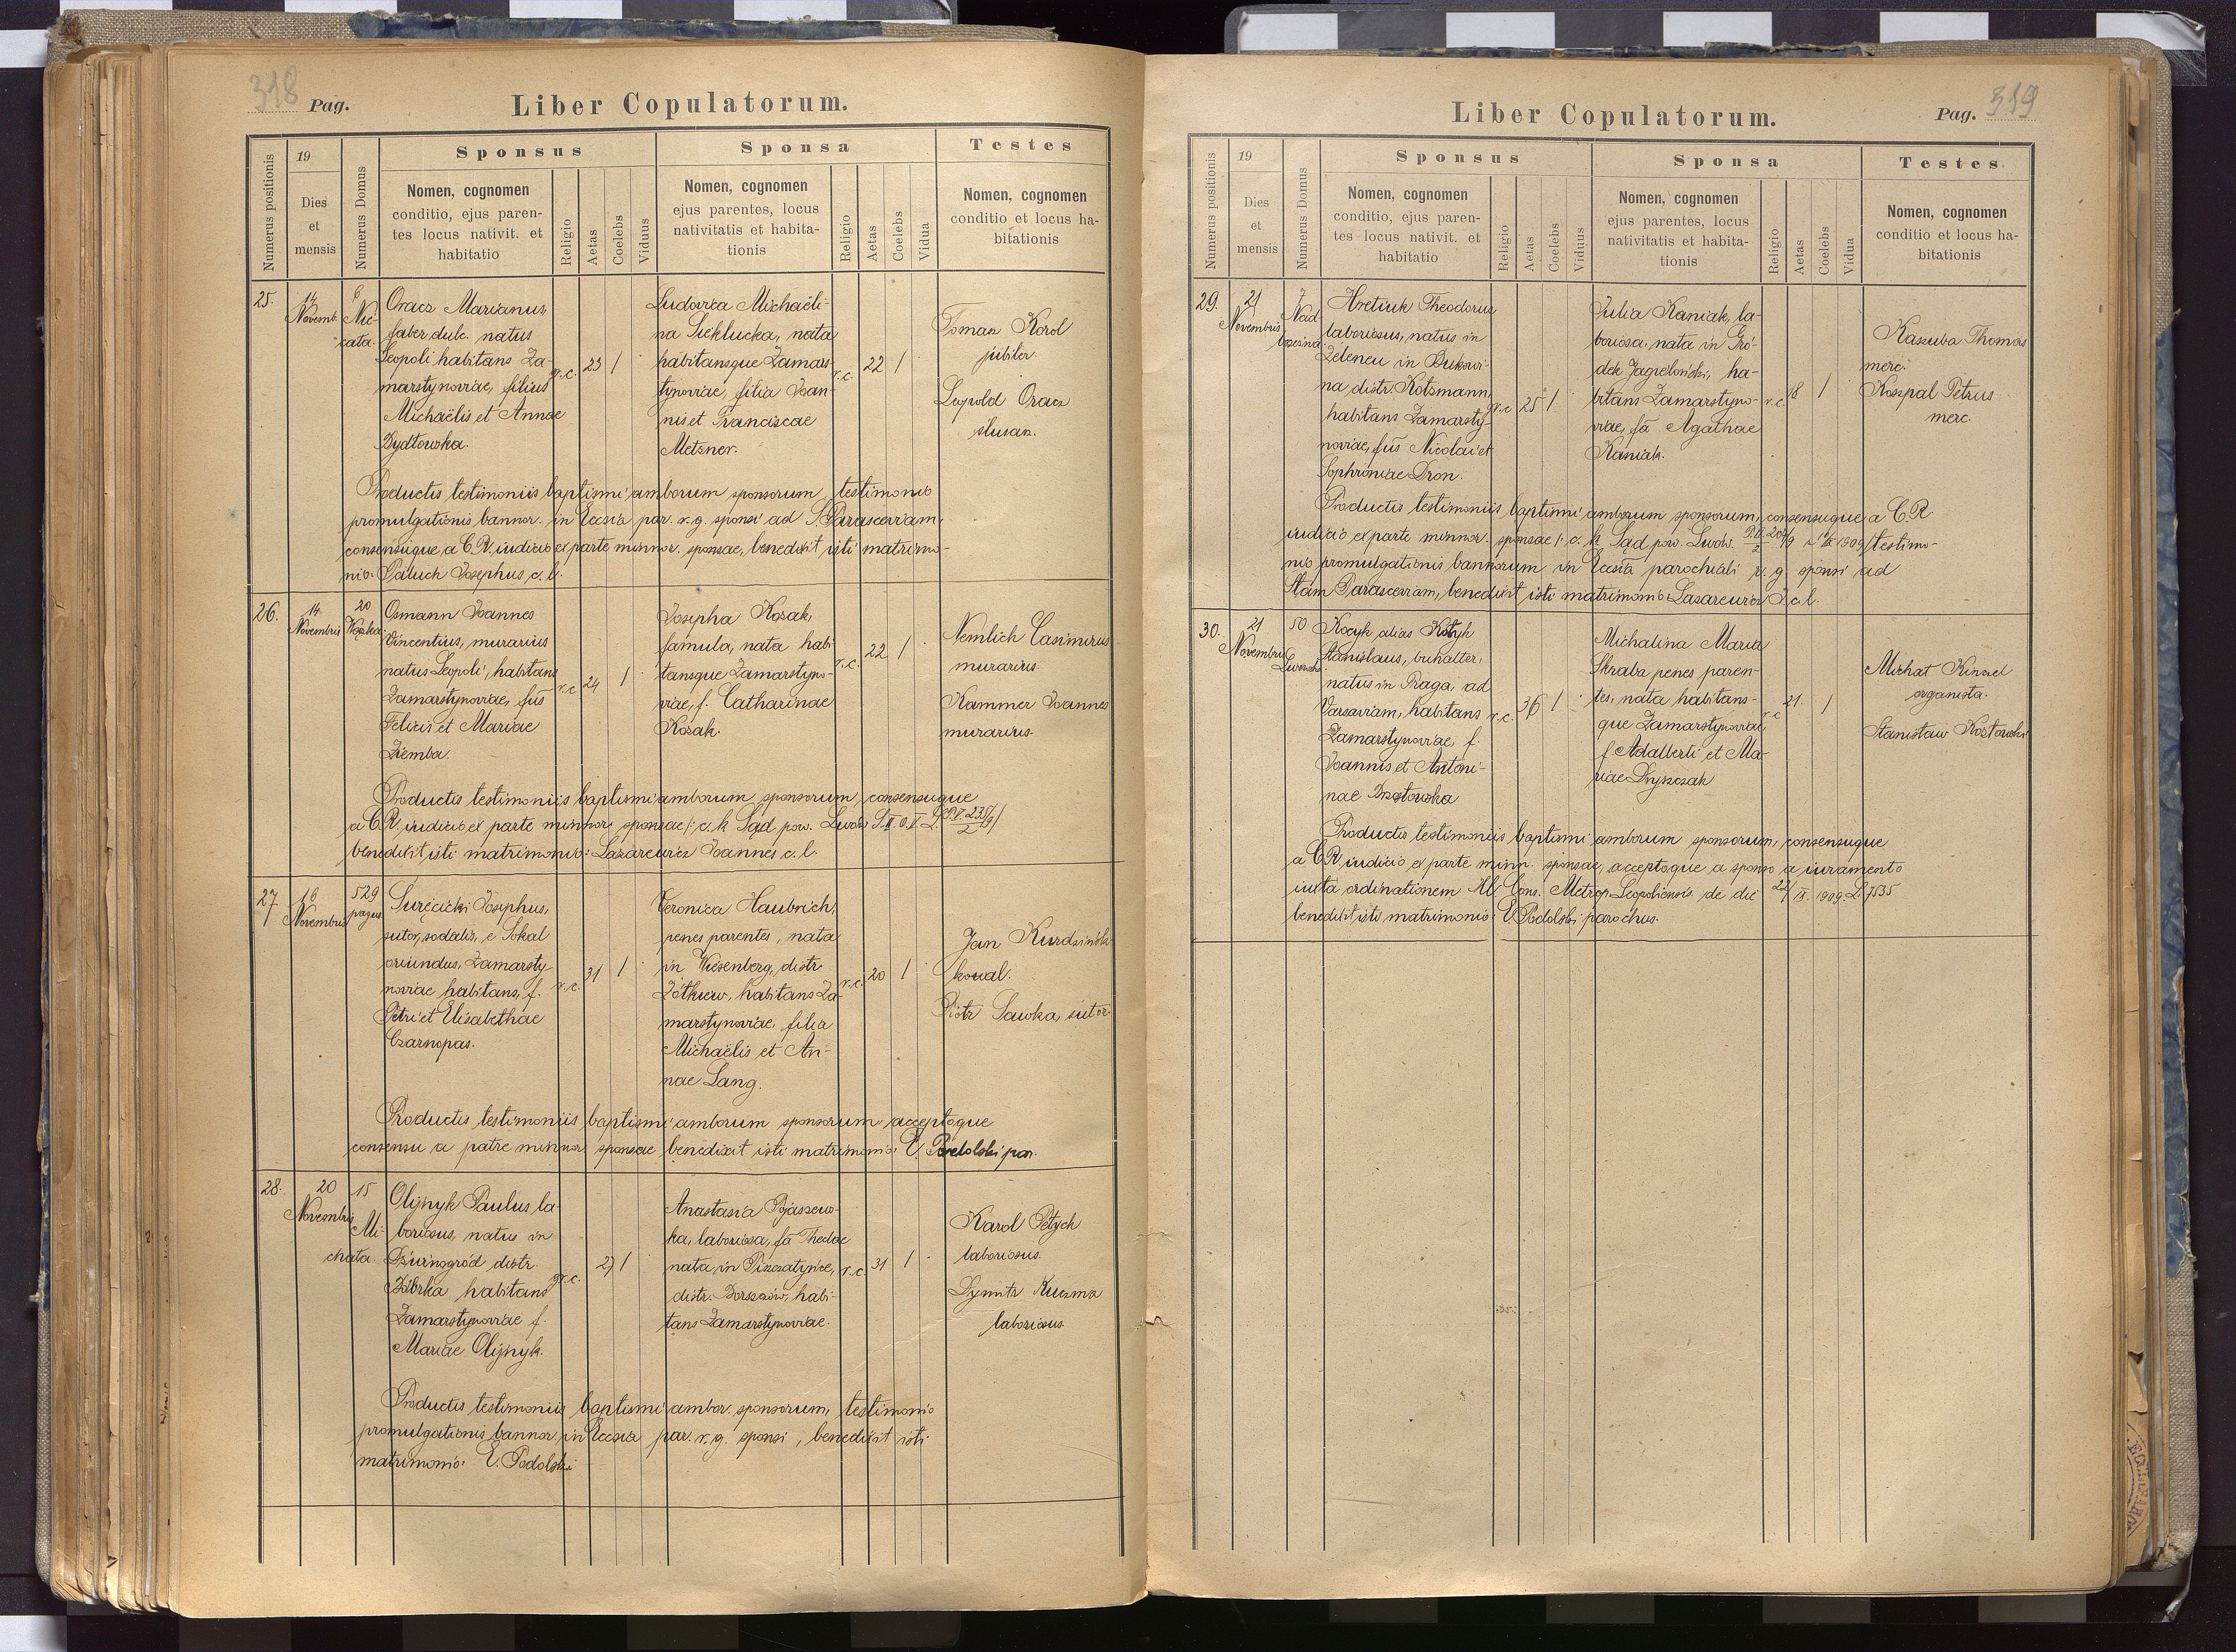 318 Pag.
Liber Copulatorum.
Numerus positionis
19
Dies
et
mensis
Numerus Domus
Sponsus
Nomen, cognomen
conditio, ejus paren-
tes locus nativit. et
habitatio
Religio
Aetas
Coelebs
Viduus
Sponsa
Nomen, cognomen
ejus parentes, locus
nativitatis et habita-
tionis
Religio
Aetas
Coelebs
Vidua
Testes
Nomen, cognomen
conditio et locus ha-
bitationis
25.
14
Novemb.
6
Mic-
Oracz Marianus
faber dulc. natus
Leopoli habitans Za-
marstynoviae, filius
Michaëlis et Annae
Dydtowska.
gr. c.
23
1
Ludovica Michaëli-
na Sieklucka, nata
habitansque Zamars-
tynoviae, filia Joan-
nis et Franciscae
Metzner.
r. c.
22
1
Toman Korol
jubiler
Leopold Oracz
slusarz.
Productis testimoniis baptismi amborum sponsorum, testimonio
promulgationis bannor. in Eccsia par. r. g. sponsi ad S. Parasceviam,
consensuque a C. R. iudicio ex parte minnor. sponsae, benedixit isti matrimo-
nio: Paluch Josephus c. l.
26.
14
Novembris
20
Osmann Joannes
Vincentius, murarius
natus Leopoli, habitans
Zamarstynoviae, fiūs
Felicis et Mariae
Ziemba.
r. c.
24
1
Josepha Kozak,
famula, nata habi-
tansque Zamarstyno-
viae, f. Catharinae
Kozak.
r. c.
22
1
Nemlich Casimirus
murarius.
Kammer Joannes
murarius.
Productis testimoniis baptismi amborum sponsorum, consensuque
a C. R. iudicio ex parte minnor. sponsae /: c. k. Sąd pow. Lwów S. II. O. V. L. P. V. 235/9 /
2
benedixit isti matrimonio: Lazarewicz Joannes c. l.
27.
16
Novembris
529
pagus
Suręcicki Josephus,
sutor, sodalis, e Sokal
oriundus, Zamarsty
noviae habitans, f.
Petri et Elisabethae
Czarnopas.
r. c.
31
1
Veronica Haubrich,
penes parentes, nata
in Wiesenberg, distr.
Żółkiew, habitans Za-
marstynoviae, filia
Michaëlis et An-
nae Lang.
r. c.
20
1
Jan Kurdzinski
kowal.
Piotr Sawka, sutor
Productis testimoniis baptismi amborum sponsorum acceptoque
consensu a patre minnor. sponsae benedixit isti matrimonio: E. Podolski par.
28.
20
Novembris
15
Mi-
chata.
Olijnyk Paulus la-
boriosus, natus in
distr.
habitans
Zamarstynoviae f.
Mariae Olijnyk.
gr. c.
27
1
Anastasia
ka, laboriosa, fa Theclae
nata in Piszczatyńce,
distr. Borszczów, habi-
tans Zamarstynoviae.
r. c.
31
1
Karol Petych
laboriosus.
Dymitr Kuzma
laboriosus.
Productis testimoniis baptismi ambor. sponsorum, testimonio
promulgationis bannor. in Eccsia par. r. g. sponsi, benedixit isti
matrimonio: E. Podolski
Liber Copulatorum.
Pag. 319
Numerus positionis
19
Dies
et
mensis
Numerus Domus
Sponsus
Nomen, cognomen
conditio, ejus paren-
tes locus nativit. et
habitatio
Religio
Aetas
Coelebs
Viduus
Sponsa
Nomen, cognomen
ejus parentes, locus
nativitatis et habita-
tionis
Religio
Aetas
Coelebs
Vidua
Testes
Nomen, cognomen
conditio et locus ha-
bitationis
29.
21
Novembris
7
Nad
brzezina
Hretiuk Theodorus
laboriosus, natus in
Zeleneu in Bukowi-
na distr. Kotzmann,
habitans Zamarsty-
noviae, fiūs Nicolai et
Sophroniae Dron.
gr. c
25
1
Julia Kaniak, la-
boriosa, nata in Gró-
dek Jagielonski, ha-
bitans Zamarstyno-
viae, fa Agathae
Kaniak.
r. c.
18
1
Kaszuba Thomas
merc.
Koszpal Petrus
merc.
Productis testimoniis baptismi amborum sponsorum, consensuque a C. R.
iudicio ex parte minnor. sponsae /: c. k. Sąd pow. Lwów. 1909/ testimo-
nio promulgationis bannorum in Eccsia parochiali r. g. sponsi ad
Stam Parasceviam, benedixit isti matrimonio: Lazarewicz J. c. l.
30.
21
Novembris
50
Kocyk alias Kotyk
Stanislaus, buhalter,
natus in Praga, ad
Varsaviam, habitans
Zamarstynoviae, f.
Joannis et Antoni-
nae Brzostowska
r. c.
36
1
Michalina Maria
Skraba penes paren-
tes, nata habitans-
que Zamarstynoviae,
f. Adalberti et Ma-
riae Dryszczak
r. c
21.
1
Michał Kinzel
organista.
Stanisław Kostowski
Productis testimoniis baptismi amborum sponsorum, consensuque
a C. R. iudicio ex parte minn. sponsae, acceptoque a sponso a iuramento
iuxta ordinationem Ill. Cons. Metrop. Leopoliensis de die 22/ IX. 1909. L. 7535
benedixit isti matrimonio: E. Podolski parochus.